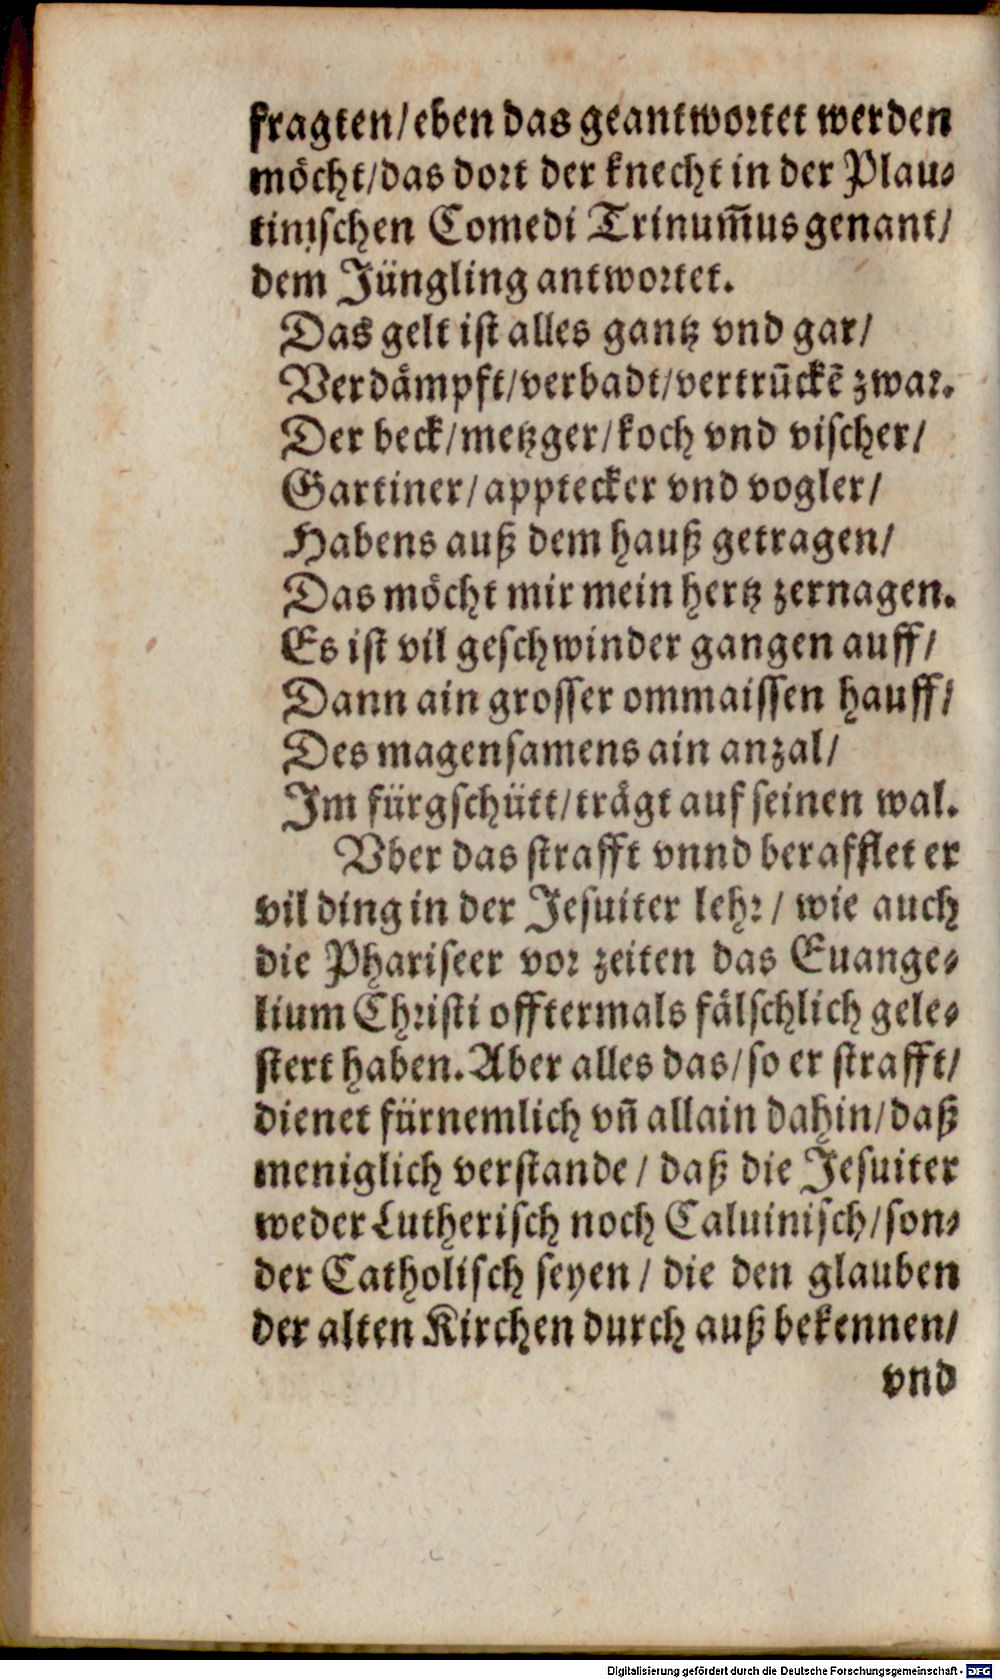 fragten/eben das geantwortet werden
möcht/das dort der knecht in der Plau⸗
tinischen Comedi Trinum̄us genant/
dem Jüngling antwortet.
Das gelt ist alles gantz vnd gar/
Verdåmpft/verbadt/vertrūckē zwar.
Der beck/metzger/koch vnd vischer/
Gartiner/apptecker vnd vogler/
Habens auß dem hauß getragen/
Das möcht mir mein hertz zernagen.
Es ist vil geschwinder gangen auff/
Dann ain grosser ommaissen hauff/
Des magensamens ain anzal/
Im fürgschütt/trågt auf seinen wal.
Vber das strafft vnnd berafflet er
vil ding in der Jesuiter lehr/ wie auch
die Phariseer vor zeiten das Euange⸗
lium Christi offtermals fålschlich gele⸗
stert haben. Aber alles das/so er strafft/
dienet fürnemlich vn̄ allain dahin/daß
meniglich verstande/ daß die Jesuiter
weder Lutherisch noch Caluinisch/son⸗
der Catholisch seyen/ die den glauben
der alten Kirchen durch auß bekennen/
vnd
Digitalisierung gefördert durch die Deutsche Forschungsgemeinschaft - DFG